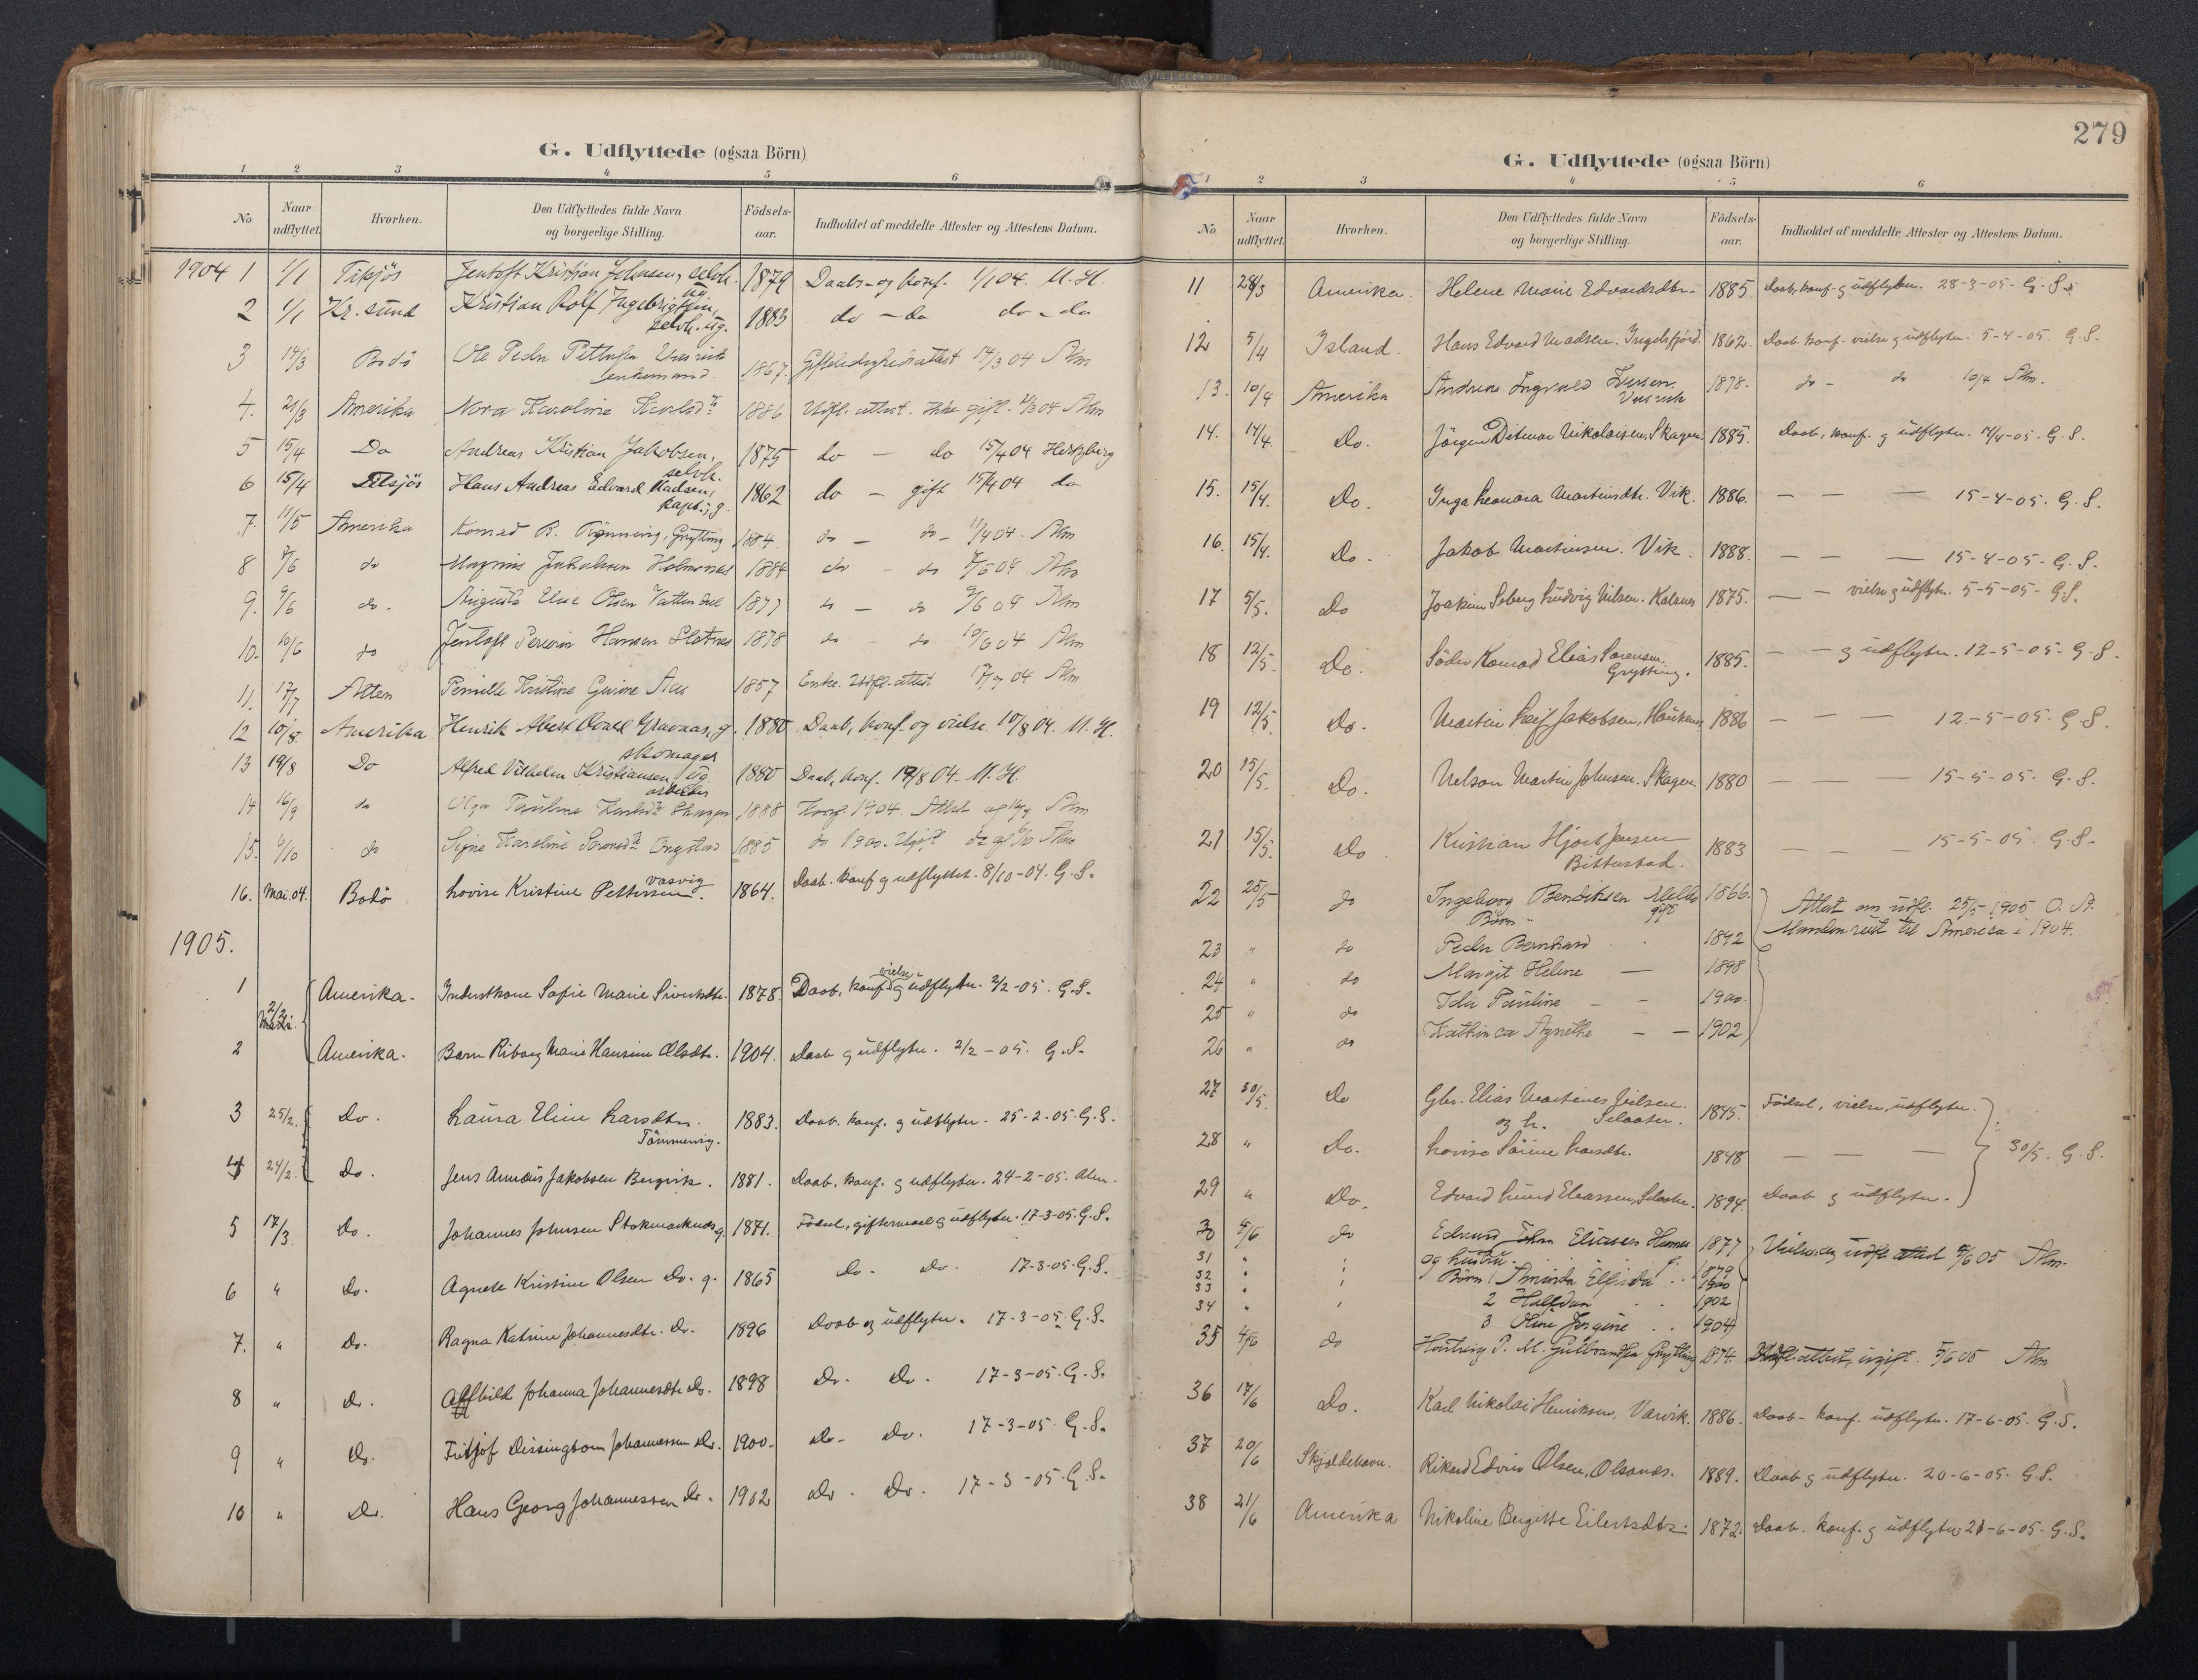 279
G. Udflyttede (ogsaa Börn)
1 2 3 4 5 6
No. Naar udflyttet. Hvorhen. Den Udflyttedes fulde Navn og borgerlige Stilling. Födsels-aar. Indholdet af meddelte Attester og Attestens Datum.
1904 1 1/1 Jentoft Kristian Johnsen, selvh. ug 1879 Daabs- og konf. 1/1 04. M. H.
2 1/1 Kr. sund Kristian Rolf selvh. ug. 1883 do - do do - do
3 14/3 Bodö Ole Peder 1867. 14/3 04 Alm
4. 21/3 Amerika Nora Karoline 1886 Udfl. attest. Ikke gift. Alm
5 15/4 Do Andreas Kristian Jakobsen, selvh. 1875 do - do 15/4 04 Hertzberg
6 15/4 Hans Andreas Edvard Madsen, kapt., g. 1862 do - gift 15/4 04 do
7. 11/5 Amerika Konrad R. Rønning, Grytting 1884 do - do - Alm
8 do Magnus Jakobsen Holmsnes 1884 do - do Alm
9. 9/6 do. Augusta Olsen 1877 do - do 9/6 04 Alm
10. 10/6 do Jentoft Hansen 1878 do - do 10/6 04 Alm
11. 17/7 Alten Pernille Kristine Aas 1857 Enke. Udfl-attest 17/7 04 Alm
12 10/8. Amerika Henrik Albert g. skomager 1880 Daab, konf. og vielse 10/8 04. M. H.
13 19/8 Do Alfred Vilhelm Kristiansen, ug arbeider 1880 Daab, konf. 19/8 04. M. H.
14 16/9 do Olga Pauline Skagen 1888 Konf. 1904. Attest af 16/9 Alm
15. 6/10 do Signe Karoline Ongstad 1885 do 1900. Ugift do af 6/10 Alm
16. Mai. 04. Bodö Lovise Kristine Pettersen. 1864. Daab. konf g udflyttet. 8/10-04. G. S.
1905.
1 2/2 Amerika. Sofie Marie 1878. Daab, konf. vielse g udflytn. 2/2-05. G. S.
2 Amerika. Barn Riborg Marie Hansine Olsdtr. 1904. Daab g udflytn. 2/2-05. G. S.
3 25/2. Do. Laura Eline Larsdtr. 1883. Daab. konf. g udflytn. 25-2-05. G. S.
4 24/2. Do. Jens Jakobsen Bergvik. 1881. Daab, konf. g udflytn. 24-2-05. Alm.
5 17/3 Do. Johannes Johnsen Stokmarknes g. 1871. Födsel, giftermaal g udflytn. 17-3-05. G. S.
6 " Do. Agnete Kristine Olsen Do. g. 1865 Do. Do. 17-3-05. G. S.
7. " Do. Ragna Katrine Johannesdtr. Do. 1896 Daab og udflytn. 17-3-05. G. S.
8 " Do. Johanna Johannesdtr. Do. 1898 Do. Do. 17-3-05. G. S.
9 " Do. Fritjof Johannessen Do. 1900. Do. Do. 17-3-05. G. S.
10 " Do. Hans Georg Johannessen Do. 1902 Do. Do. 17-3-05. G. S.
G. Udflyttede (ogsaa Börn)
1 2 3 4 5 6
No. Naar udflyttet. Hvorhen. Den Udflyttedes fulde Navn og borgerlige Stilling. Födsels-aar. Indholdet af meddelte Attester og Attestens Datum.
11 28/3 Amerika. Helene Marie Edvardsdtr. 1885 Daab, konf. g udflytn. 28-3-05. G. S.
12 5/4 Island. Hans Edvard Madsen. Ingelsfjord. 1862. Daab. konf. vielse g udflytn. 5-4-05. G. S.
13. 10/4 Amerika Andreas Ingvald 1878. do - do 10/4 Alm.
14. 14/4. Do. Jörgen Ditmar Nikolaisen, Skagen. 1885. Daab, konf. g udflytn. 14/4-05. G. S.
15. 15/4. Do. Inga Leonora Martinsdtr. Vik. 1886. — — — 15-4-05. G. S.
16. 15/4. Do. Jakob Martinsen. Vik. 1888. — — — 15-4-05. G. S.
17 5/5. Do Joakim Ludvig Nilsen. Kalsnes 1875. — — vielse g udflytn. 5-5-05. G. S.
18 12/5. Do. Konrad Elias Sorensen. Grytting. 1885. — — g udflytn. 12-5-05. G. S.
19 12/5. Do. Martin Leif Jakobsen, 1886 — — — 12-5-05. G. S.
20 15/5. Do. Nelson Martin Johnsen. Skagen. 1880 — — — 15-5-05. G. S.
21 15/5. Do Kristian Hjort Jensen Bitterstad. 1883 — — — 15-5-05. G. S.
22 25/5 do Ingeborg Bendiksen Melbo gift 1866. Attest om udfl. 25/5 1905 O. A.
Börn
23 " do Peder Bernhard 1892 Manden reist til America i 1904.
24 " do Margit Helene — 1898
25 " do Ida Pauline - - 1900.
26 " do Kathinca Agnethe - - 1902
27 30/5. Do Gbr. Elias Martines Nilsen. og h. 1845. Födsel, vielse, udflytn.
28 " Do. Lovise Larsdtr. 1848 — — — 30/5. G. S.
29 " Do. Edvard Eliassen, 1894. Daab g udflytn.
30 do Edvard Eliassen 1877 Alm.
31 " og hustru. 1879
32 " Börn 1 1900
33 " 2 Halfdan 1902
34 " 3 Oline Jörgine 1904
35 do P. M. Gulbrandsen Grytting 1874. Udfl-attest, ugift. Alm
36 17/6 Do. Karl Nikolai Henriksen, Varvik. 1886. Daab- konf. udflytn. 17-6-05. G. S.
37 20/6 Skjoldehavn. Rikard Edvin Olsen, Olsanes. 1889. Daab g udflytn. 20-6-05. G. S.
38 21/6 Amerika Nikoline Bergitte Eilertsdtr. 1872. Daab. konf. g udflytn. 21-6-05. G. S.